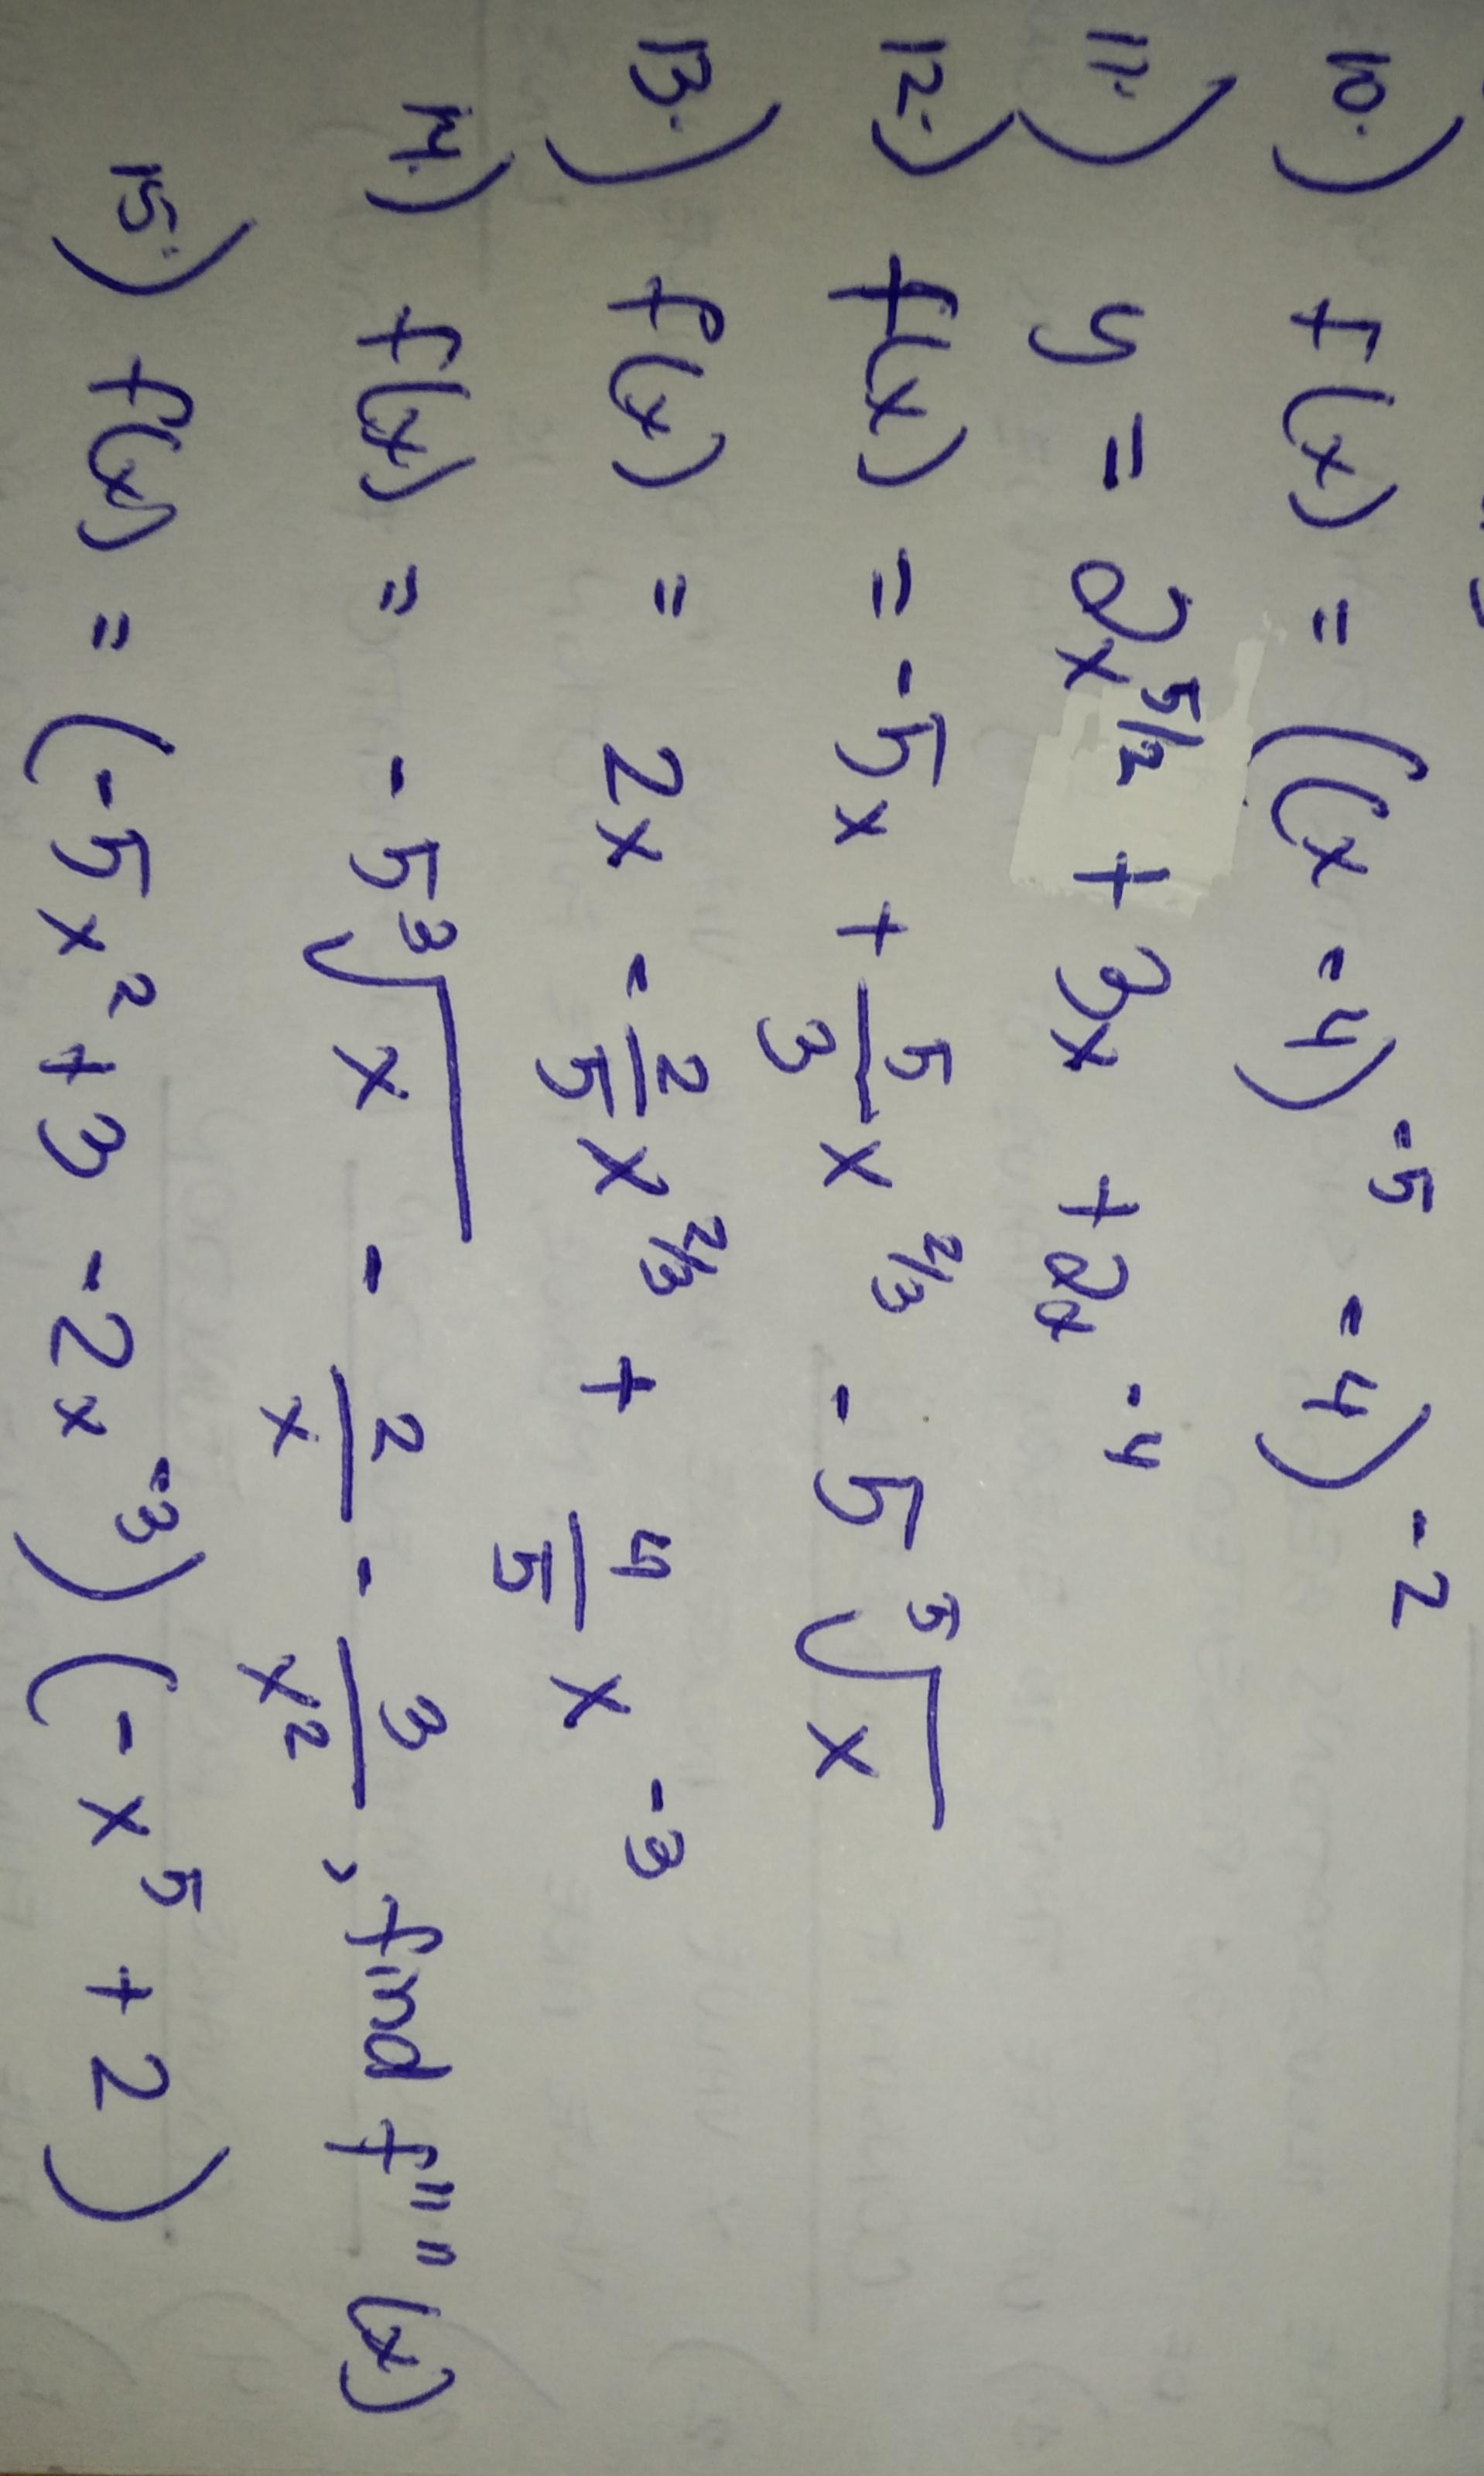 10.) f(x) = ((x - 4)^-5 - 4)^-2
11.) y = 2x^5/2 + 3x + 2x^-4
12.) f(x) = -5x + 5/3 x^2/3 - 5 ⁵√x
13.) f(x) = 2x - 2/5 x^2/3 + 4/5 x^-3
14.) f(x) = -5 ³√x - 2/x - 3/x², find f''''(x)
15.) f(x) = (-5x² + 3 - 2x^-3)(-x⁵ + 2)